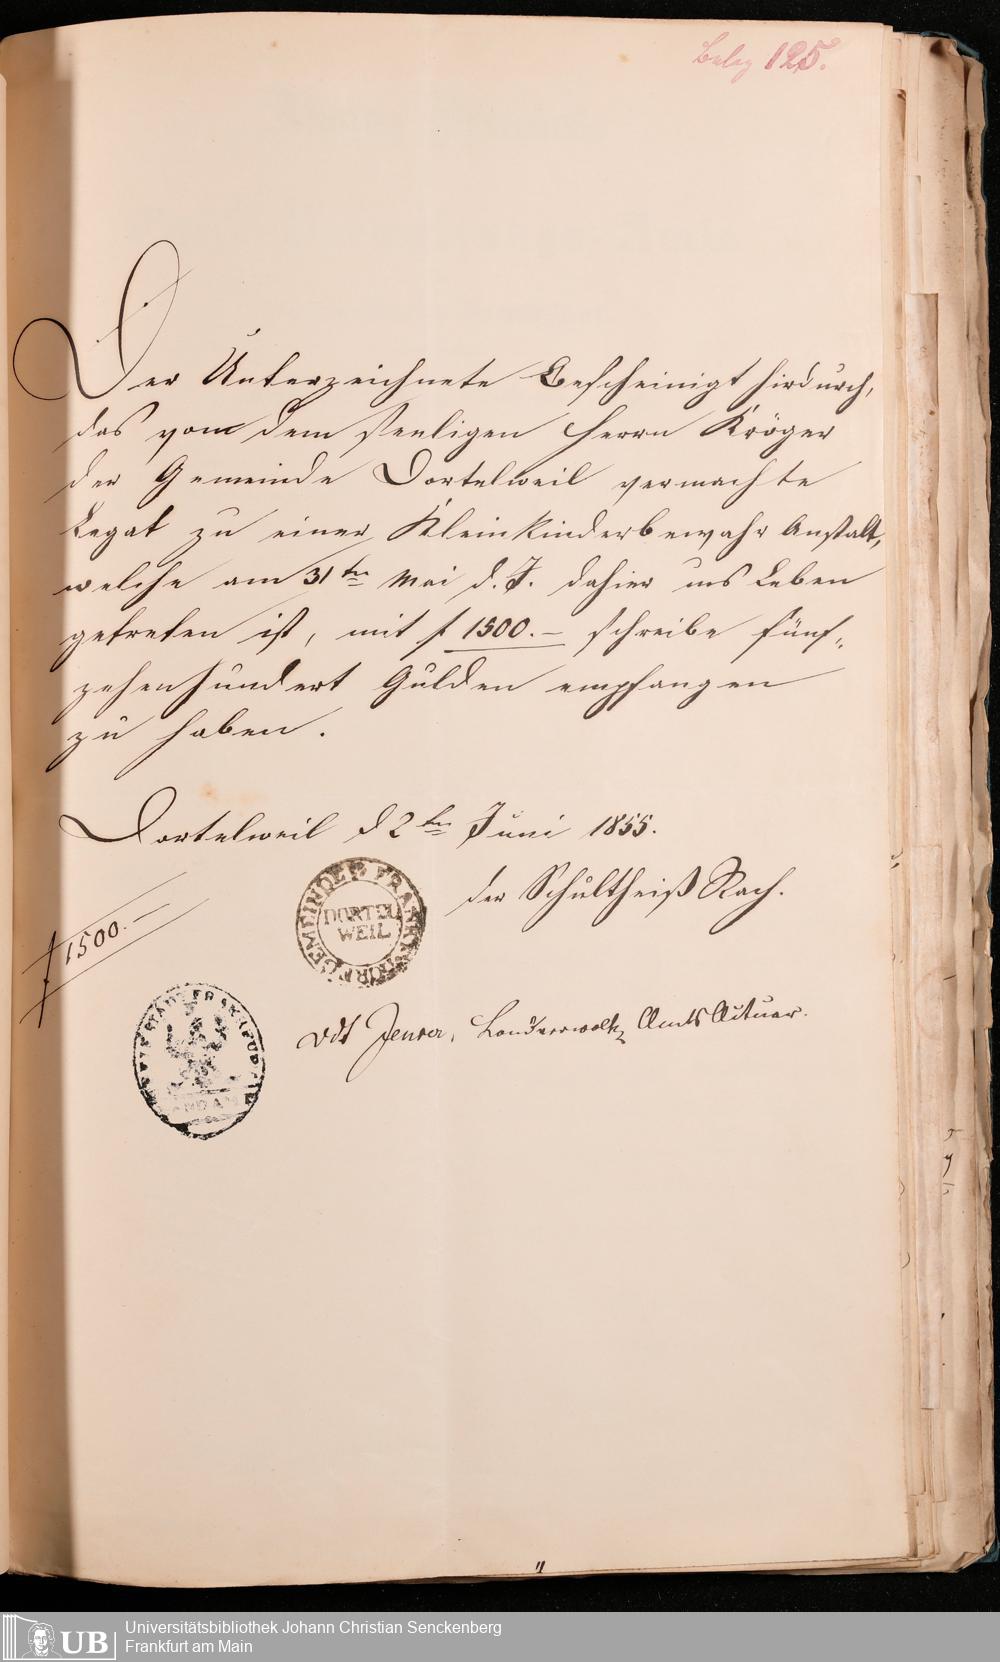 Beleg 125.
Der Unterzeichnete Bescheinigt hirdurch,
das vom dem seeligen Herrn Kröger
der Gemeinde Dortelweil vermachte
Legat zu einer Kleinkinderbewahr Anstalt,
welche am 31ten Mai d. J. dahier ins Leben
getreten ist, mit f 1500.– schreibe fünf-
zehenhundert Gulden empfangen
zu haben.
Dortelweil d 2ten Juni 1855.
der Schultheiß Rach.
GEMEINDE FRANKF. DORF
DORTEL
WEIL
f 1500.–
vdt Landverwaltg Amts Actuar.
Universitätsbibliothek Johann Christian Senckenberg
UB Frankfurt am Main